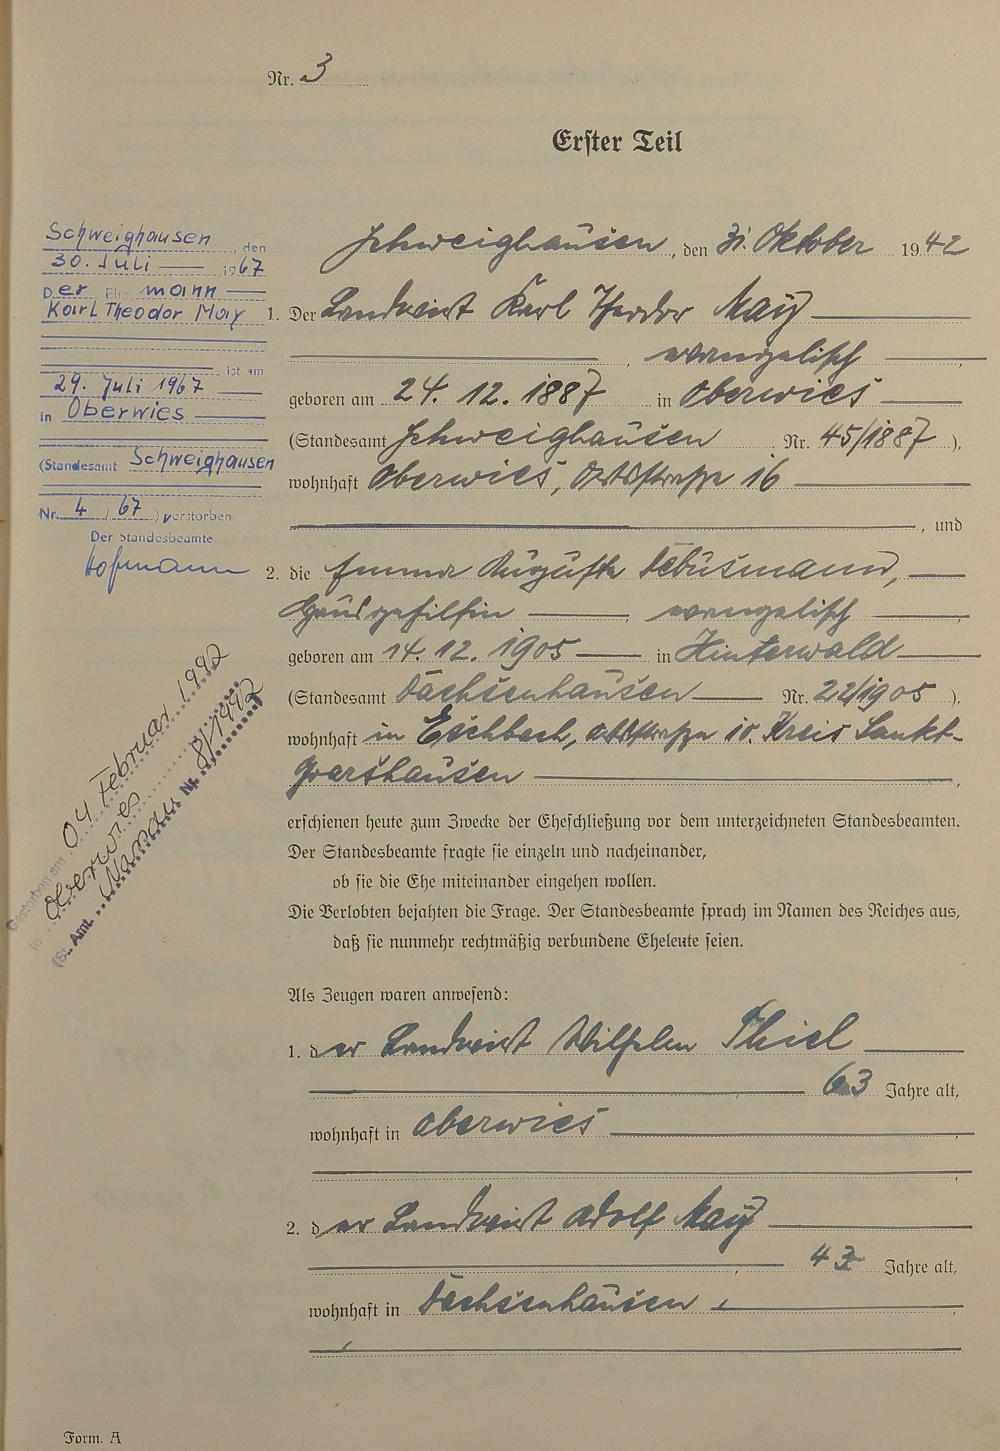 Nr. 3
Erster Teil
Schweighausen, den
30. Juli 1967
Der Ehemann
Karl Theodor May
ist am
29. Juli 1967
in Oberwies
(Standesamt Schweighausen
Nr. 4 / 67) verstorben.
Der Standesbeamte
Hofmann
Gestorben am 04 Februar 1992
in Oberwies
(St. Amt Nassau Nr. 8/1992
Schweighausen, den 31. Oktober 1942
1. Der Landwirt Karl Theodor May
, evangelisch,
geboren am 24. 12. 1887 in Oberwies
(Standesamt Schweighausen Nr. 45/1887),
wohnhaft Oberwies, Ortsstraße 16
, und
2. die Emma Auguste Debusmann,
Hausgehilfin, evangelisch,
geboren am 14. 12. 1905 in Hinterwald
(Standesamt Dachsenhausen Nr. 22/1905),
wohnhaft in Eschbach, Ortsstraße 10. Kreis Sankt-
Goarshausen,
erschienen heute zum Zwecke der Eheschließung vor dem unterzeichneten Standesbeamten.
Der Standesbeamte fragte sie einzeln und nacheinander,
ob sie die Ehe miteinander eingehen wollen.
Die Verlobten bejahten die Frage. Der Standesbeamte sprach im Namen des Reiches aus,
daß sie nunmehr rechtmäßig verbundene Eheleute seien.
Als Zeugen waren anwesend:
1. der Landwirt Wilhelm Thiel
63 Jahre alt,
wohnhaft in Oberwies
2. der Landwirt Adolf May
43 Jahre alt,
wohnhaft in Dachsenhausen.
Form. A